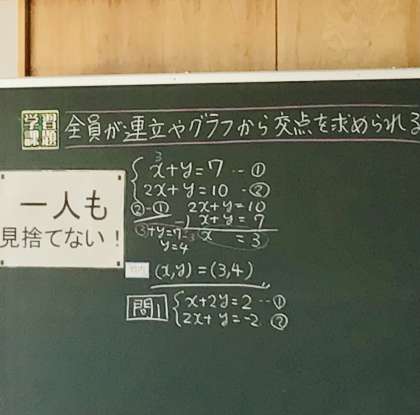 学習課題 全員が連立やグラフから交点を求められる
3
x+y=7 … ①
2x+y=10 … ②
②-① 2x+y=10
-) x+y=7
x =3
3+y=7
y=4
(x,y)=(3,4)
問1 x+2y=2 … ①
2x+y=-2 ②
一人も
見捨てない!